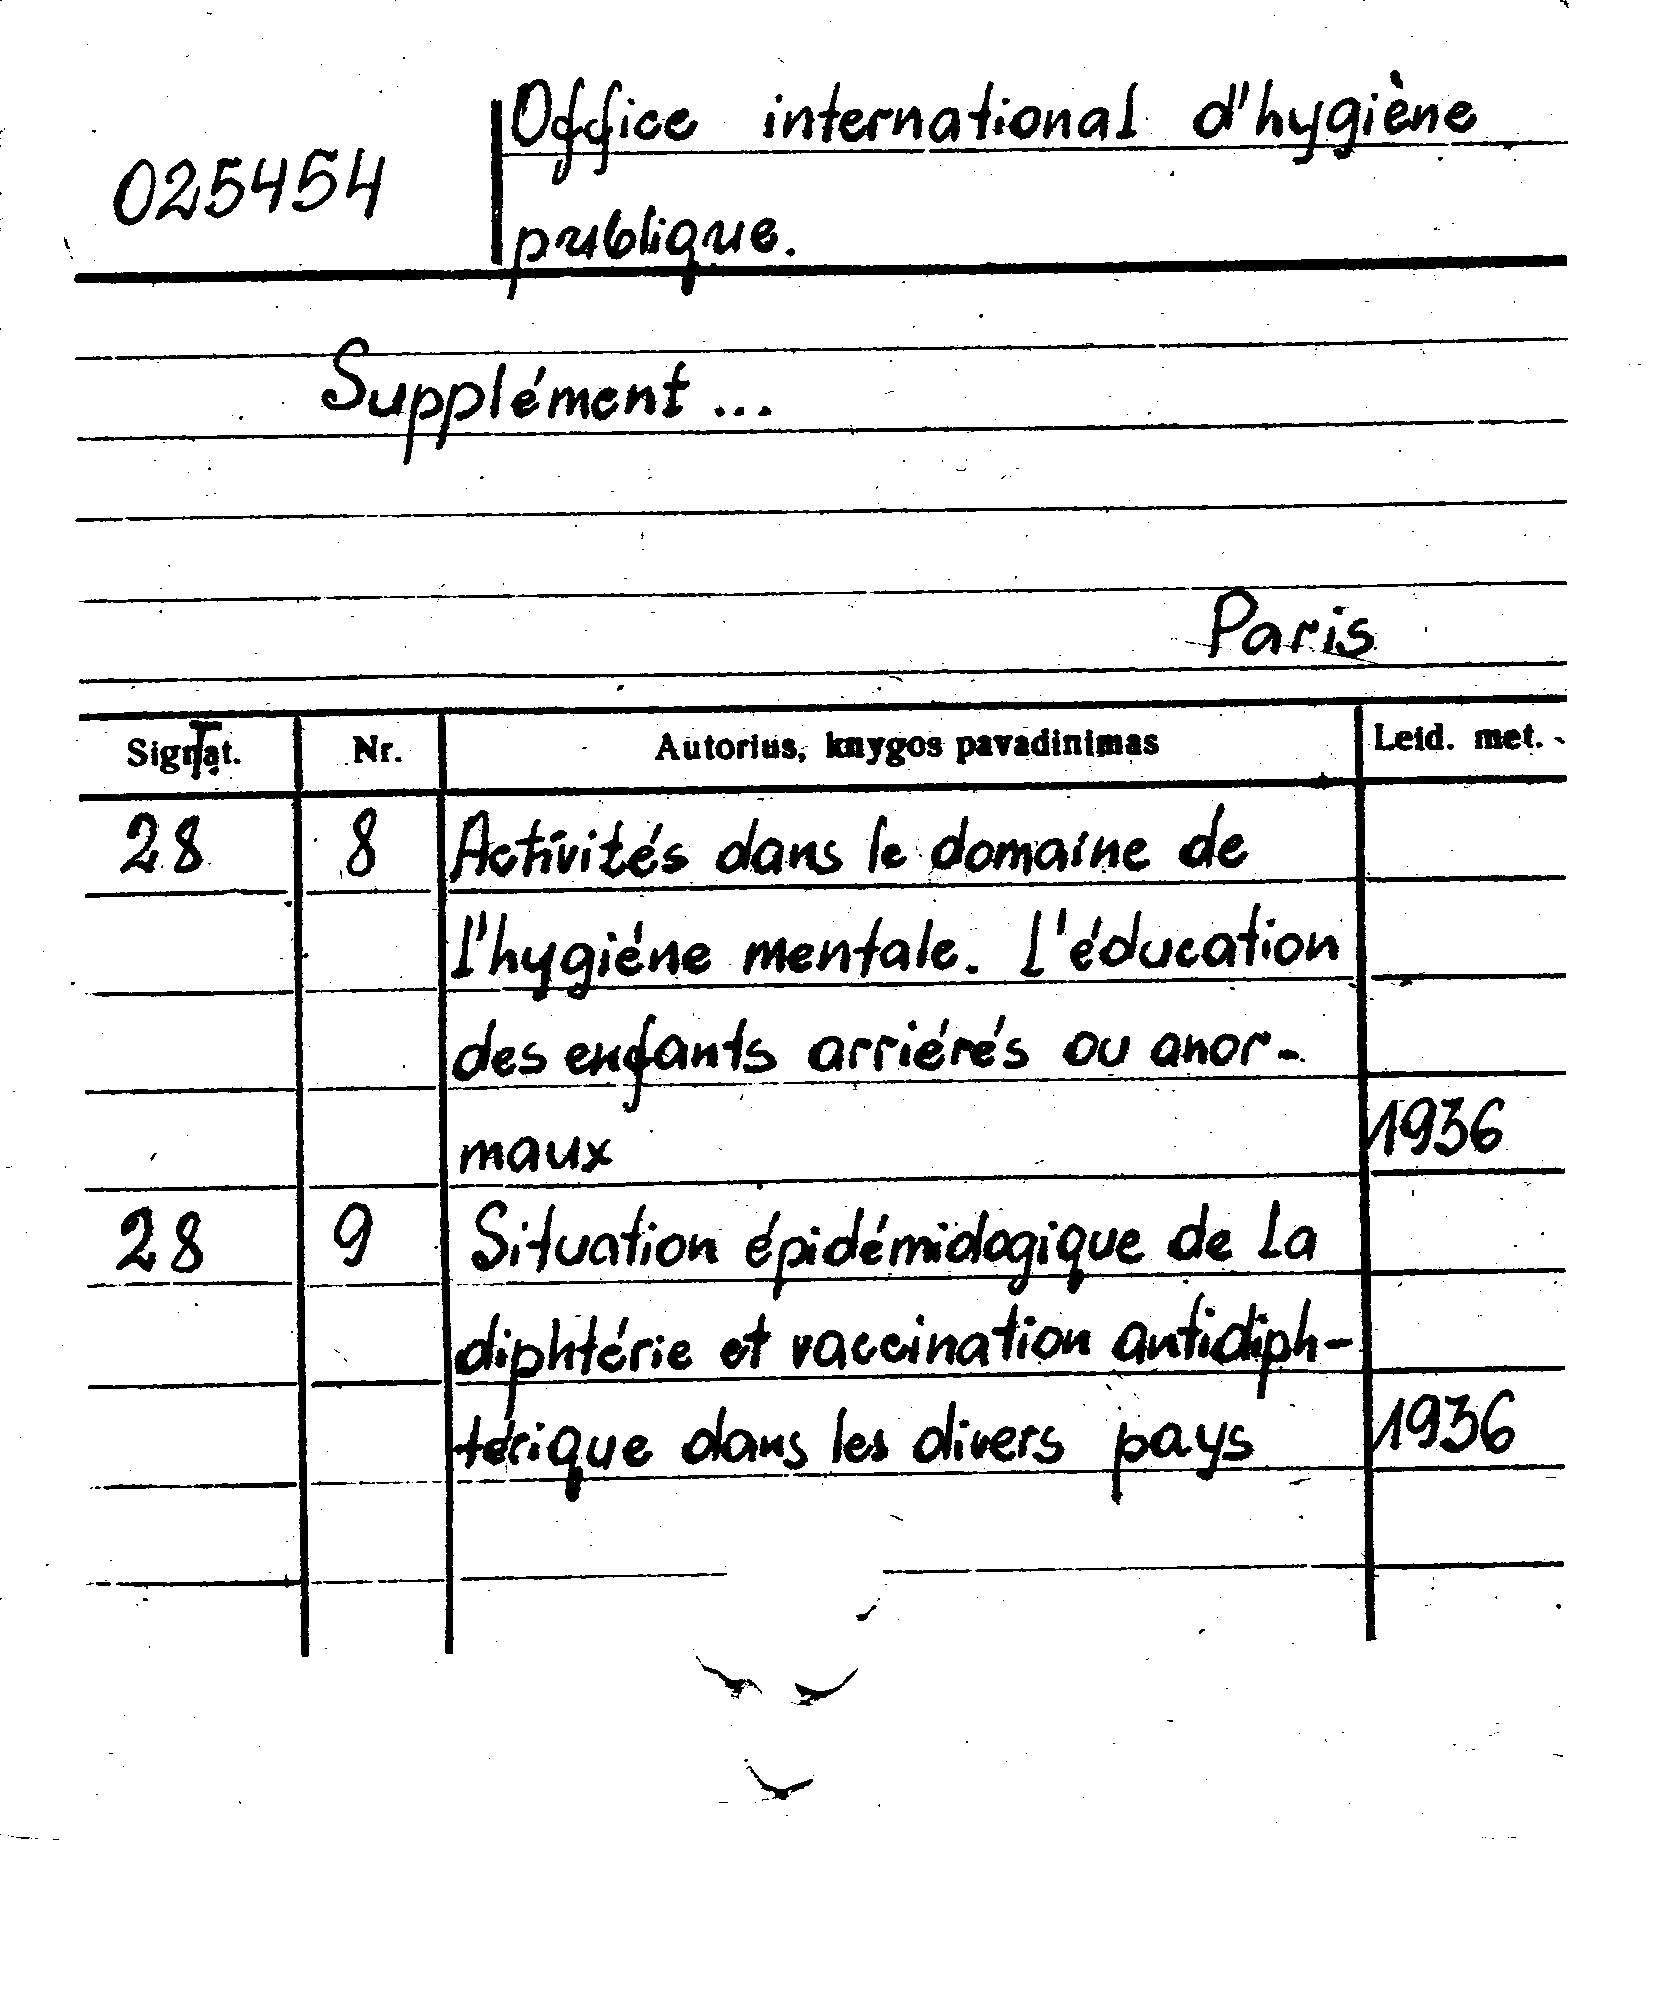 Office international d'hygiène
025454
publique.
Supplément ...
Paris
Signat. Nr. Autorius, knygos pavadinimas Leid. met.
T.
28 8 Activités dans le domaine de
l'hygiéne mentale. L'éducation
des enfants arriérés ou anor-
maux 1936
28 9 Situation épidémidogique de la
diphtérie et vaccination antidiph-
térique dans les divers pays 1936